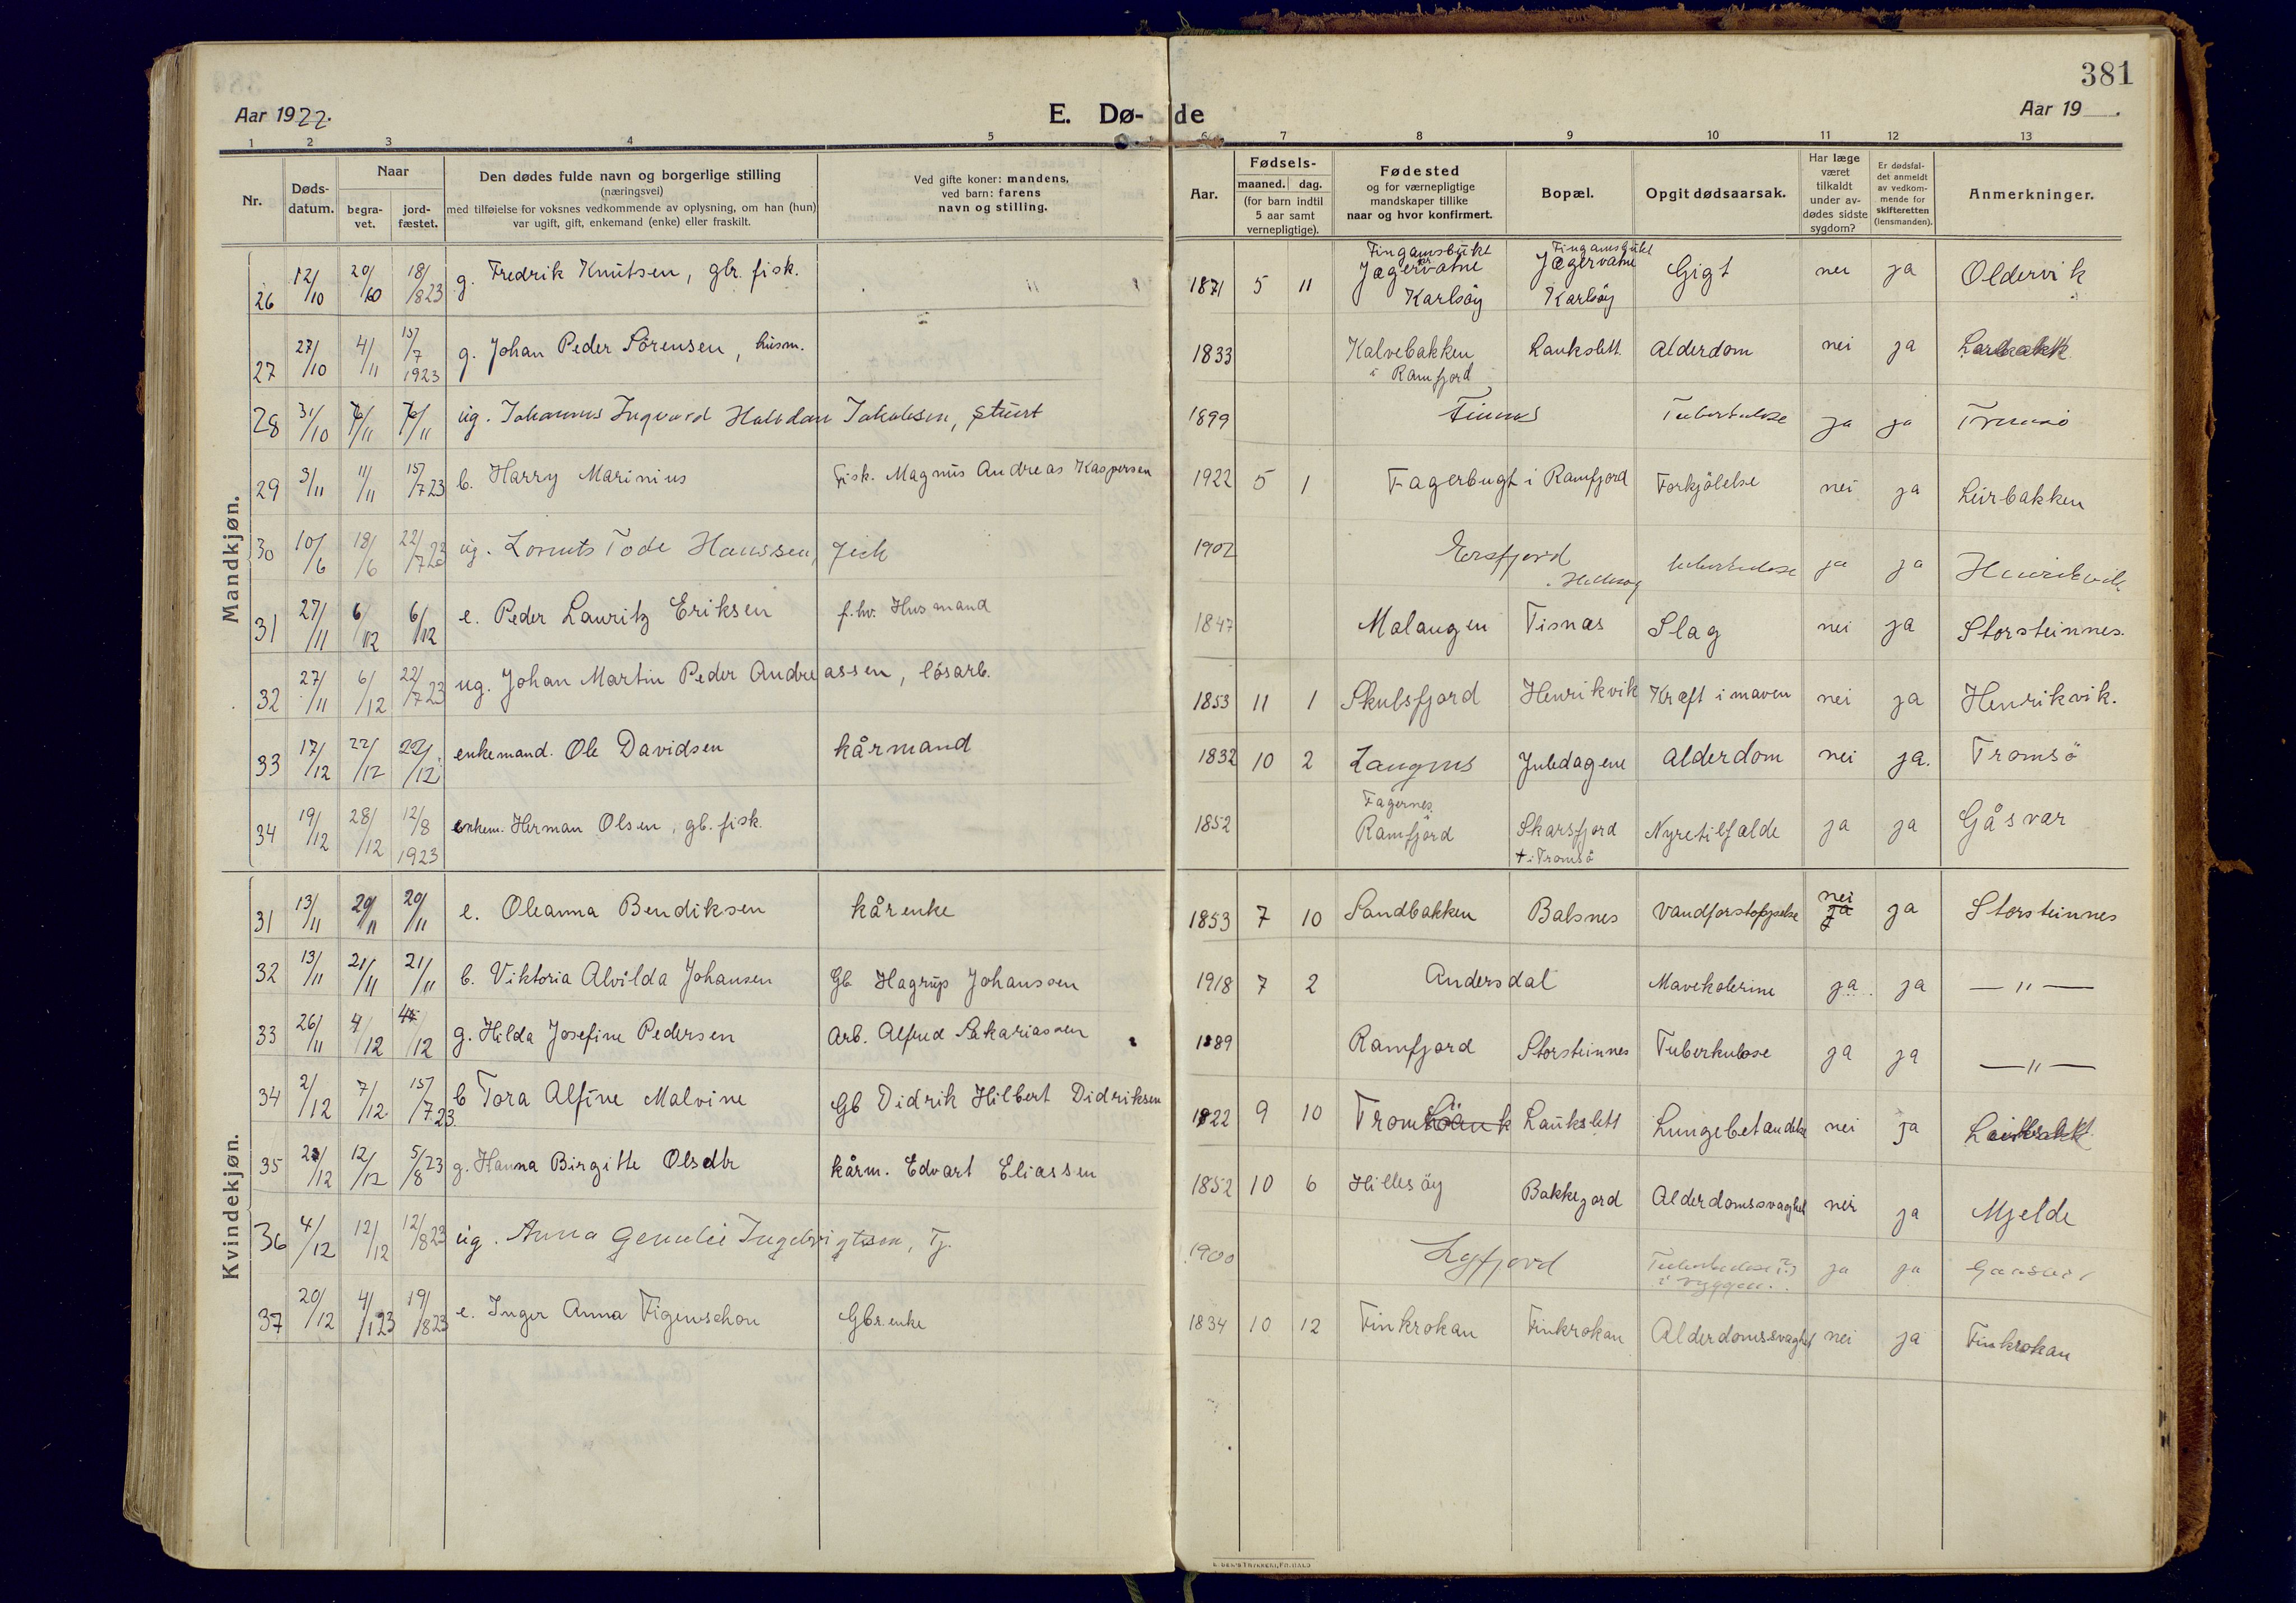 381
Aar 1922.
E. Dø-de
Aar 19 .
1 2 3 4 5 6 7 8 9 10 11 12 13
Nr.
Døds-datum.
Naar
begra-vet.
jord-fæstet.
Den dødes fulde navn og borgerlige stilling
(næringsvei)
med tilføielse for voksnes vedkommende av oplysning, om han (hun)
var ugift, gift, enkemand (enke) eller fraskilt.
Ved gifte koner: mandens,
ved barn: farens
navn og stilling.
Aar.
Fødsels-
maaned. dag.
(for barn indtil
5 aar samt
vernepligtige).
Fødested
og for værnepligtige
mandskaper tillike
naar og hvor konfirmert.
Bopæl.
Opgit dødsaarsak.
Har læge
været
tilkaldt
under av-
dødes sidste
sygdom?
Er dødsfal-
det anmeldt
av vedkom-
mende for
skifteretten
(lensmanden).
Anmerkninger.
Mandkjøn.
26 12/10 20/10 18/823 g. Fredrik Knutsen, gbr. fisk. 1871 5 11 Fingamsbukt Jægervatne Karlsøy Fingamsbukt Jægervatne Karlsøy Gigt nei ja Oldervik
27 27/10 4/11 15/7 1923 g. Johan Peder Sörensen, husm. 1833 Kalvebakken i Ramfjord Laukslett Alderdom nei ja
28 31/10 /11 /11 ug. Johannes Ingvard Halvdan Jakobsen, 1899 Tuberkulose ja ja Tromsö
29 3/11 11/11 15/723 b. Harry Marinius Fisk. Magnus Andreas Kaspersen 1922 5 1 Fagerbugt i Ramfjord Forkjölelse nei ja Leirbakken
30 10/6 18/6 22/723 ug. Lorents Tode Hanssen, 1902 Ersfjord i Hillesøy tuberkulose ja ja Henrikvik
31 27/11 6/12 6/12 e. Peder Lauritz Eriksen f.hv. Husmand 1847 Malangen Tisnæs Slag nei ja Storsteinnes.
32 27/11 6/12 22/723 ug. Johan Martin Peder Andreassen, lösarb. 1853 11 1 Skulsfjord Henrikvik Kræft i maven nei ja Henrikvik.
33 17/12 22/12 22/12 enkemand. Ole Davidsen kårmand 1832 10 2 Langnes Juledagene Alderdom nei ja. Tromsö
34 19/12 28/12 12/8 1923 enkem. Herman Olsen, gb. fisk. 1852 Fagernes Ramfjord Skarsfjord † i Tromsö Nyretilfælde ja ja Gåsvær
Kvindekjøn.
31 13/11 20/11 20/11 e. Oleanna Bendiksen kårenke 1853 7 10 Sandbakken Balsnes nei ja ja Storsteinnes
32 13/11 21/11 21/11 b. Viktoria Alvilda Johansen Gb Hagrup Johanssen 1918 7 2 Andersdal Mavekolerine ja ja — " —
33 26/11 4/12 4/12 g. Hilda Josefine Pedersen Arb. Alfred Sakariassen 1889 Ramfjord Storsteinnes Tuberkulose ja ja — " —
34 2/12 7/12 15/723 b Tora Alfine Malvine Gb Didrik Hilbert Didriksen 1922 9 10 Laukslett Lungebetændelse nei ja
35 2/12 12/12 5/823 g. Hanna Birgitte Olsdtr kårm. Edvart Eliassen 1852 10 6 Hillesöy Bakkejord Alderdomssvaghet nei ja Mjelde
36 4/12 12/12 12/823 ug. Anna Ingebrigtsen, Tj. 1900 Tuberkulose (?) i ryggen. ja ja
37 20/12 4/123 19/823 e. Inger Anna Figenschou Gbr.enke 1834 10 12 Finkrokan Finkrokan Alderdomssvaghet nei ja Finkrokan